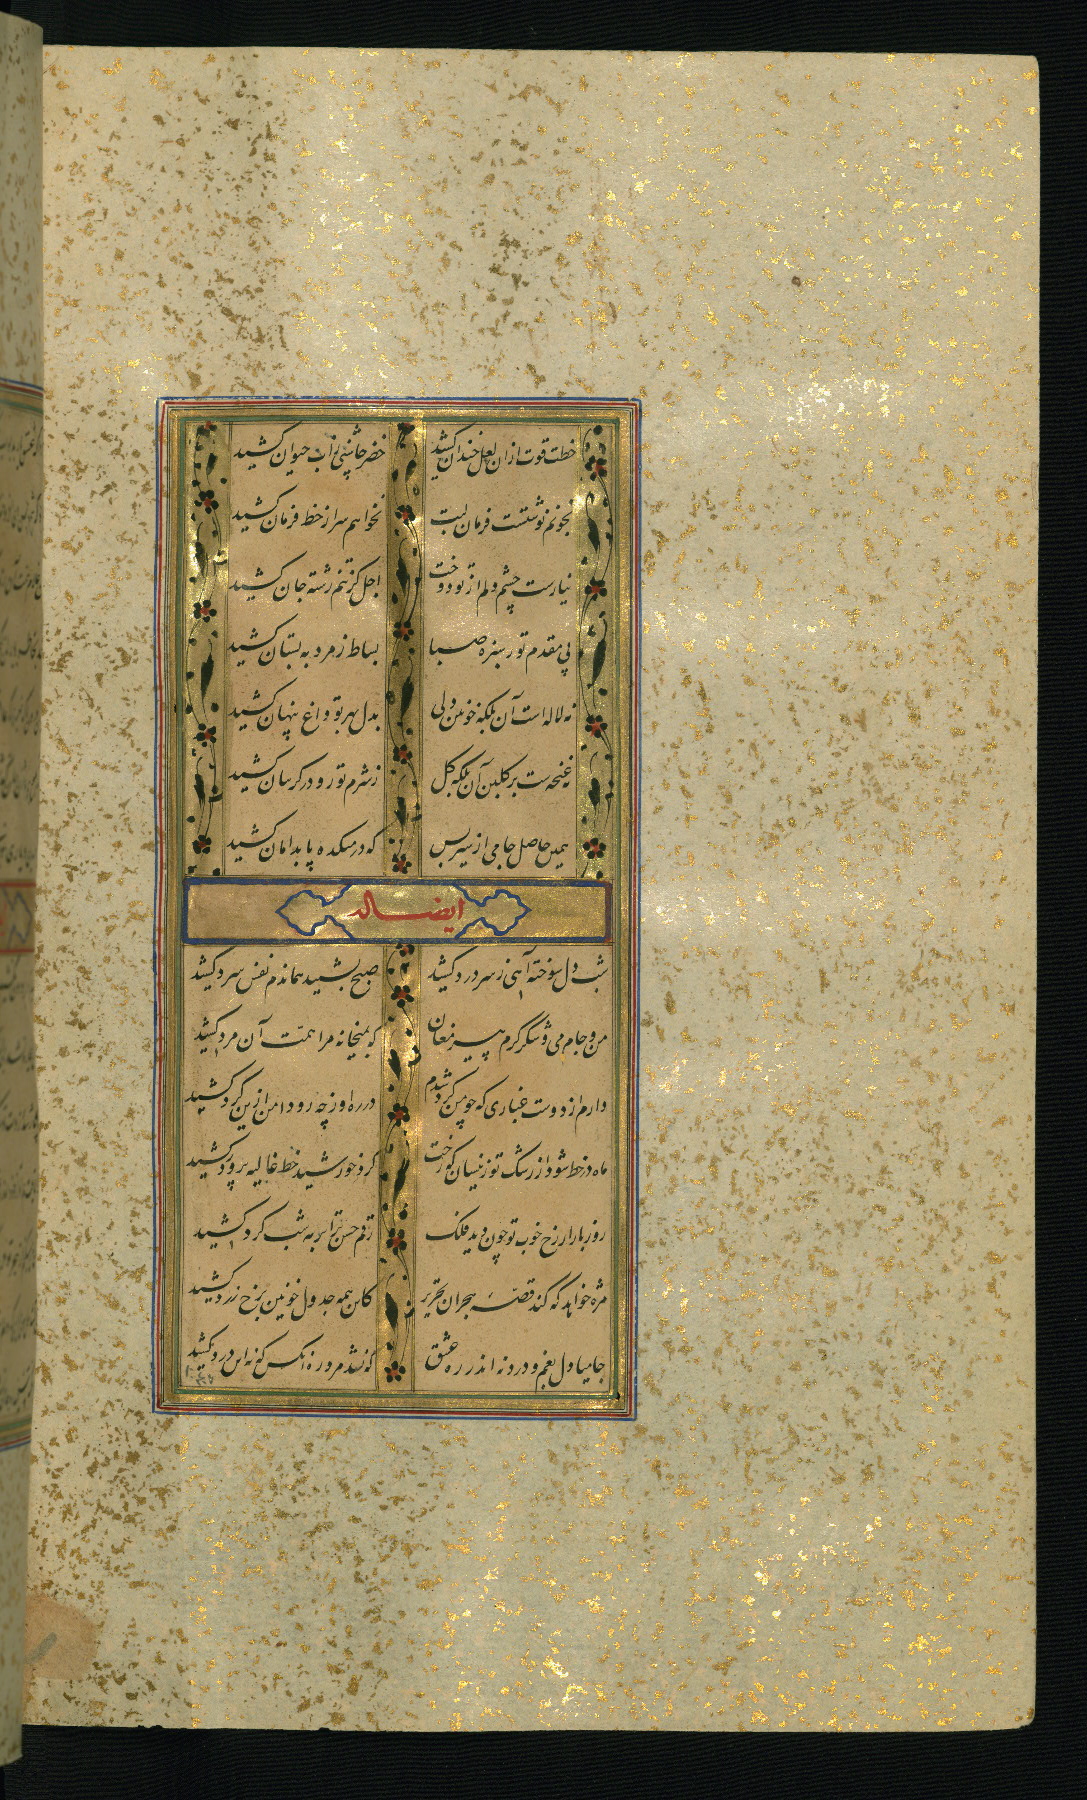 خطت قوت ازان لعل خندان کشید
خضر چاشنی ز آب حیوان کشید
بخونم نوشتست فرمان لبت
نخواهم سر از خط فرمان کشید
نیارست چشم دلم از تو دوخت
اجل کز تنم رشته جان کشید
پی مقدم تو ز سبزه صبا
بساط زمرد به بستان کشید
نه لاله است آن بلکه خونین دلی
بدل بهر تو داغ پنهان کشید
نه غنچه ست بر گلبن آن بلکه گل
ز شرم تو رو در گریبان کشید
همین حاصل جامی از سیر بس
که در میکده پا بدامان کشید
ایضا له
شب دل سوخته آهی ز سر درد کشید
صبح بشنید هماندم نفس سرد کشید
من و جام می و شکر کرم پیر مغان
که بمیخانه مرا همت آن مرد کشید
دارم از دوست غباری که چو من گرد شدم
در ره او ز چه رو دامن ازین گرد کشید
ماه در خط شود از رشک تو زینسان که رخت
گرد خورشید خط غالیه پرورد کشید
روز بازار رخ خوب تو چون دید فلک
رقم حسن ترا بر مه شب گرد کشید
مژه خواهد که کند قصه هجران تحریر
کاین همه جدول خونین برخ زرد کشید
جامیا دل بغم و درد نه اندر ره عشق
که نشد مرد ره آنکس که نه این درد کشید